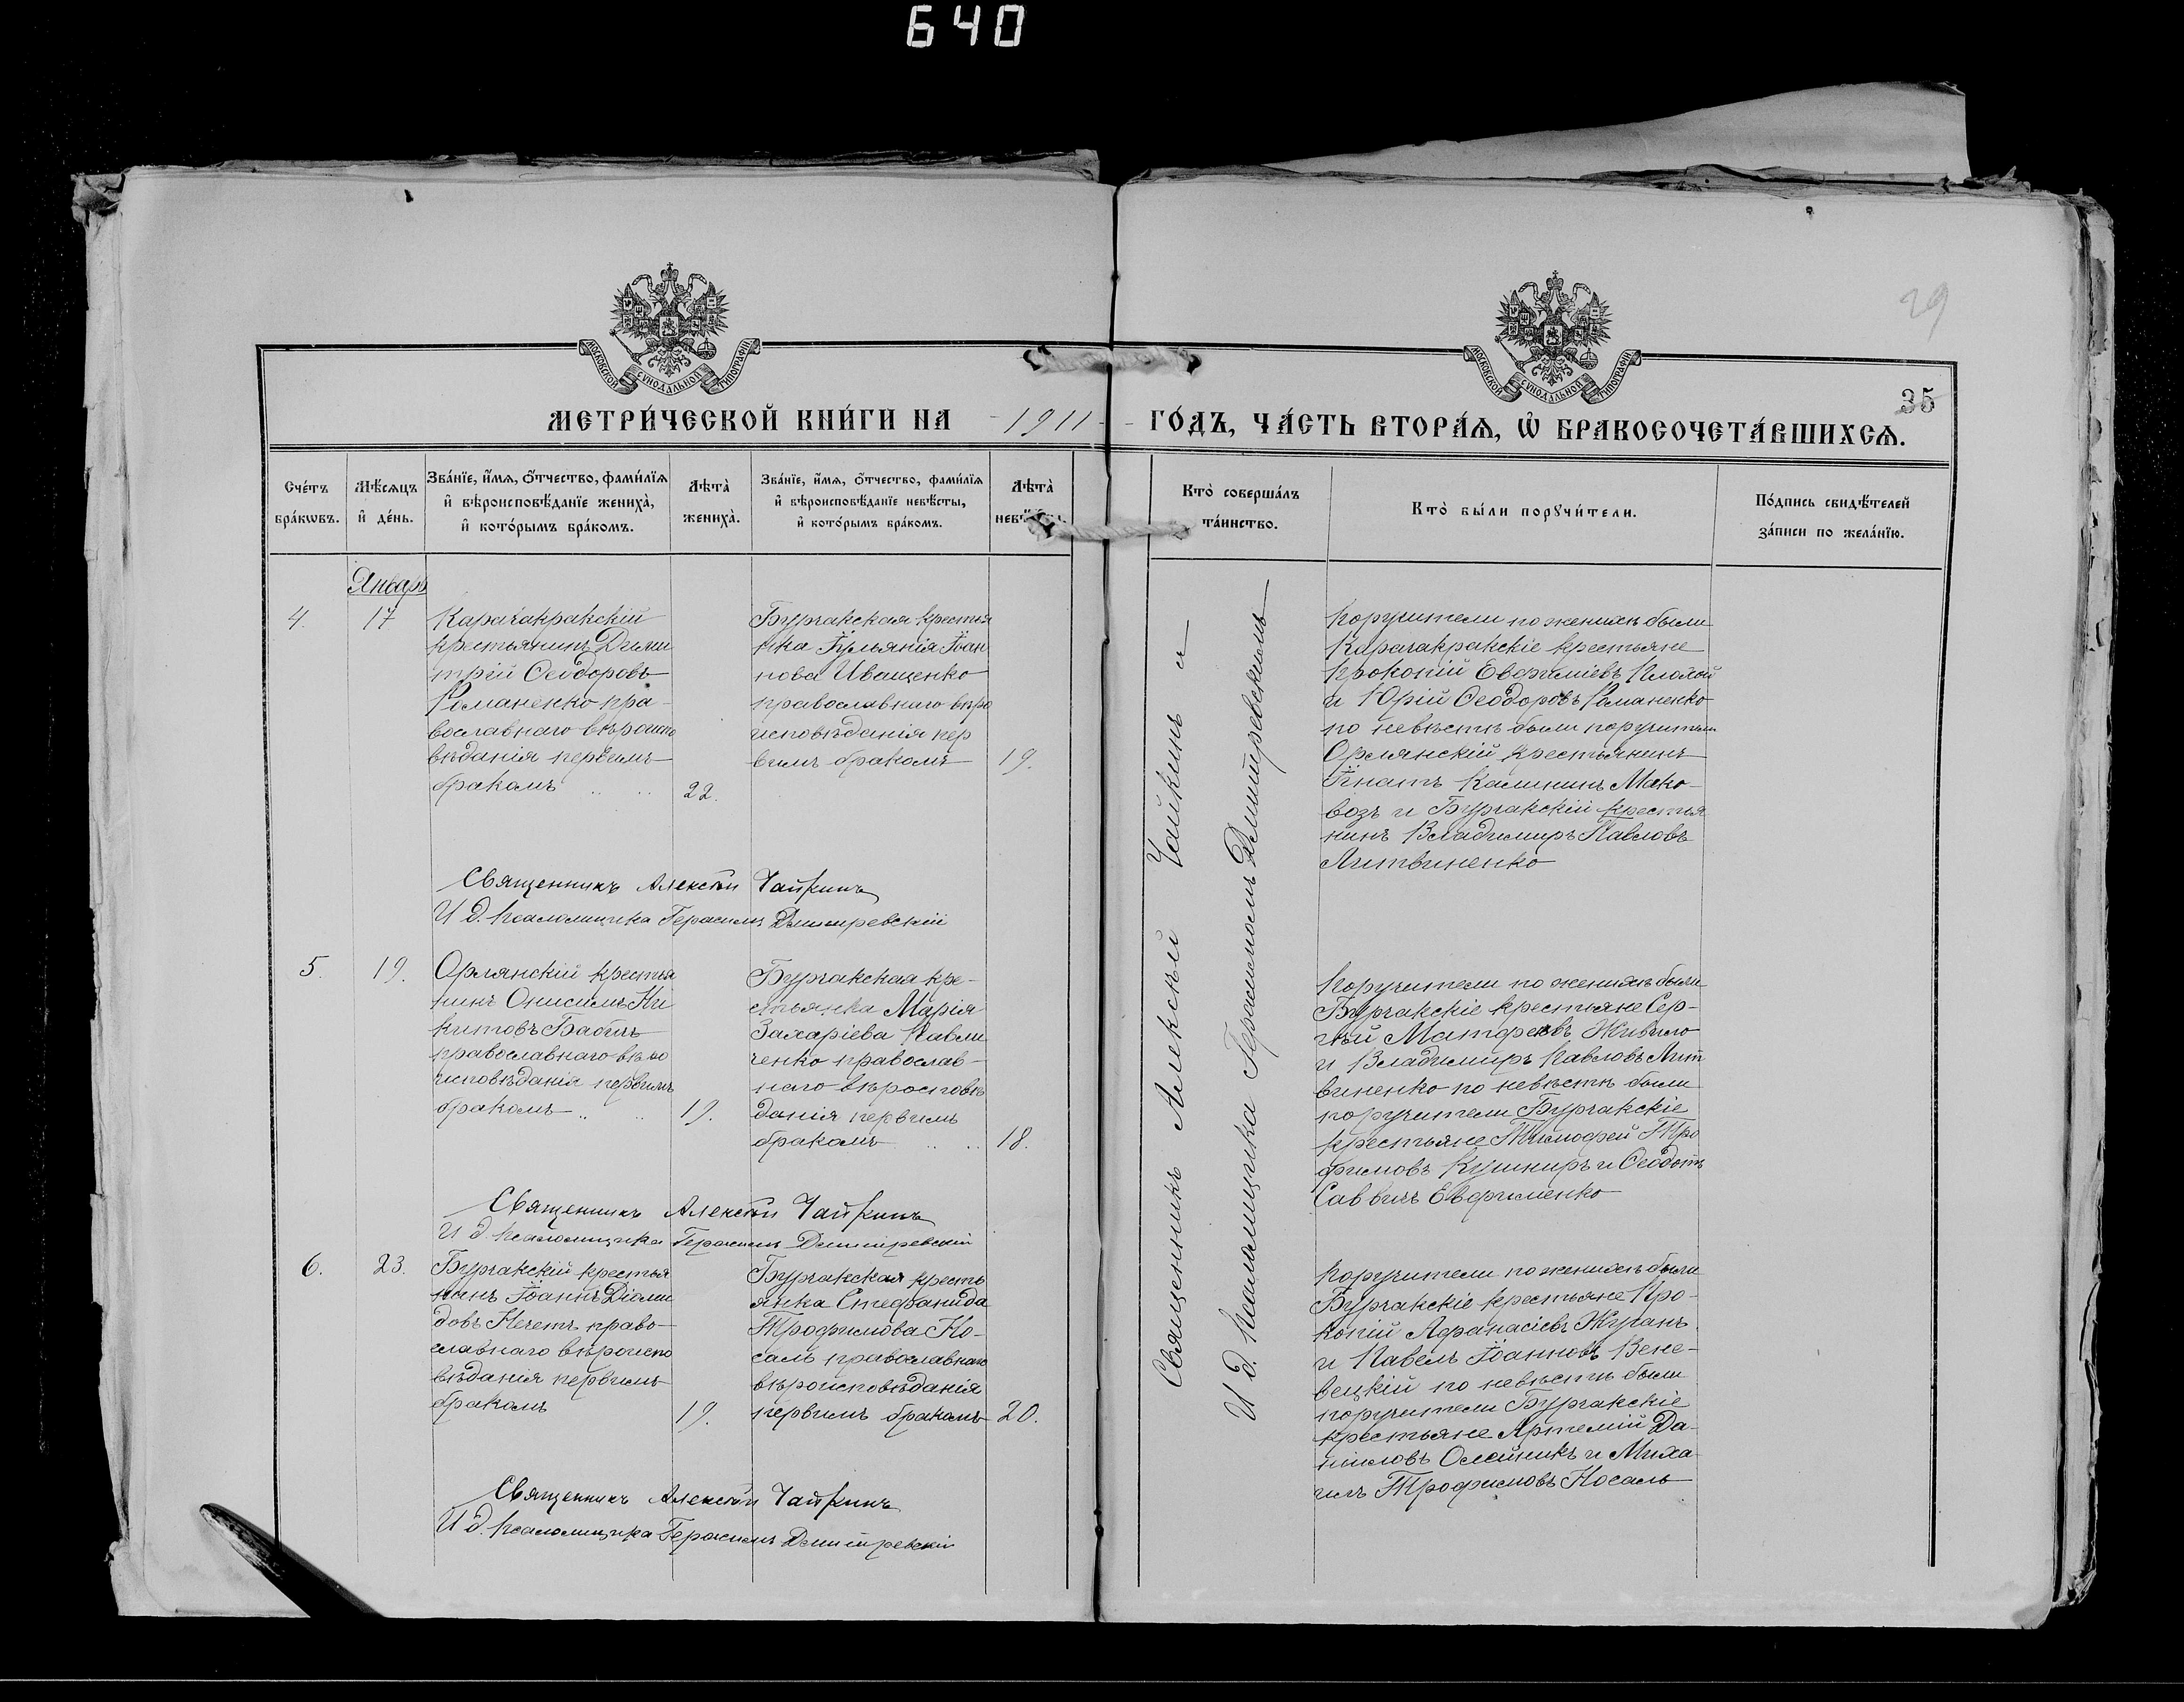 640
29
35
МОСКОВСКОЙ СѴНОДАЛЬНОЙ ТИПОГРАФІИ
МОСКОВСКОЙ СѴНОДАЛЬНОЙ ТИПОГРАФІИ
МЕТРИ́ЧЕСКОЙ КНИ́ГИ НА 1911 ГО́ДЪ, ЧА́СТЬ ВТОРА́Ѧ, Ѡ҆ БРАКОСОЧЕТА́ВШИХСѦ.
Сче́тъ бра́кѡвъ.
Мѣ́сѧцъ и҆ де́нь.
Зва́нїе, и҆́мѧ, ѻ҆́тчество, фами́лїѧ
и҆ вѣроисповѣ́данїе жениха̀,
и҆ кото́рымъ бра́комъ.
Лѣта̀ жениха̀.
Зва́нїе, и҆́мѧ, ѻ҆́тчество, фами́лїѧ
и҆ вѣроисповѣ́данїе невѣ́сты,
и҆ кото́рымъ бра́комъ.
Лѣта̀
Кто̀ соверша́лъ
та́инство.
Кто̀ бы́ли порꙋчи́тели.
По́дпись свидѣ́телей
за́писи по жела́нїю.
Январь
4.
17
Карачакракскій
крестьянинъ Дими
трій Ѳеодоровъ
Романенко пра-
вославнаго вѣроиспо
вѣданія первымъ
бракомъ
22.
Бурчакская крестья
нка Іульянія Іоан
нова Иващенко
православнаго вѣро
исповѣданія пер
вымъ бракомъ
19.
Поручители по женихѣ были
Карачакракскіе крестьяне
Прокопій Евфиміевъ Плохой
и Юрій Ѳеодоровъ Романенко
по невѣстѣ были поручители
Орлянскій крестьянинъ
Игнатъ Калининъ Мако-
возъ и Бурчакскій крестья
нинъ Владимиръ Павловъ
Литвиненко
Священникъ Алексѣй Чайкинъ
И д. псаломщика Герасимъ Димитревскій
5.
19.
Орлянскій крестья
нинъ Онисимъ Ни
китовъ Бабичъ
православнаго вѣро
исповѣданія первымъ
бракомъ
19.
Бурчакская кре-
стьянка Марія
Захаріева Павли
ченко православ-
наго вѣроисповѣ
данія первымъ
бракомъ
18.
Поручители по женихѣ были
Бурчакскіе крестьяне Сер-
гѣй Матфеевъ Живило
и Владимиръ Павловъ Лит
виненко по невѣстѣ были
поручители Бурчакскіе
крестьяне Тимофей Тро
фимовъ Кушниръ и Ѳеодотъ
Саввичъ Евфименко
Священникъ Алексѣй Чайкинъ
И д. псаломщика Герасимъ Димитревскій
6.
23.
Бурчакскій крестья
нинъ Іоаннъ Діоми
довъ Нечетъ право-
славнаго вѣроиспо
вѣданія первымъ
бракомъ
19.
Бурчакская кресть
янка Стефанида
Трофимова Но-
саль православнаго
вѣроисповѣданія
первымъ бракомъ
20.
Поручители по женихѣ были
Бурчакскіе крестьяне Про-
копій Афанасіевъ Жуганъ
и Павелъ Іоанновъ Вене-
вецкій по невѣстѣ были
поручители Бурчакскіе
крестьяне Артемій Да-
ниловъ Олейникъ и Миха
илъ Трофимовъ Носаль
Священникъ Алексѣй Чайкинъ
И д. псаломщика Герасимъ Димитревскій
Священникъ Алексѣй Чайкинъ и
И д. псаломщика Герасимомъ Димитревскимъ